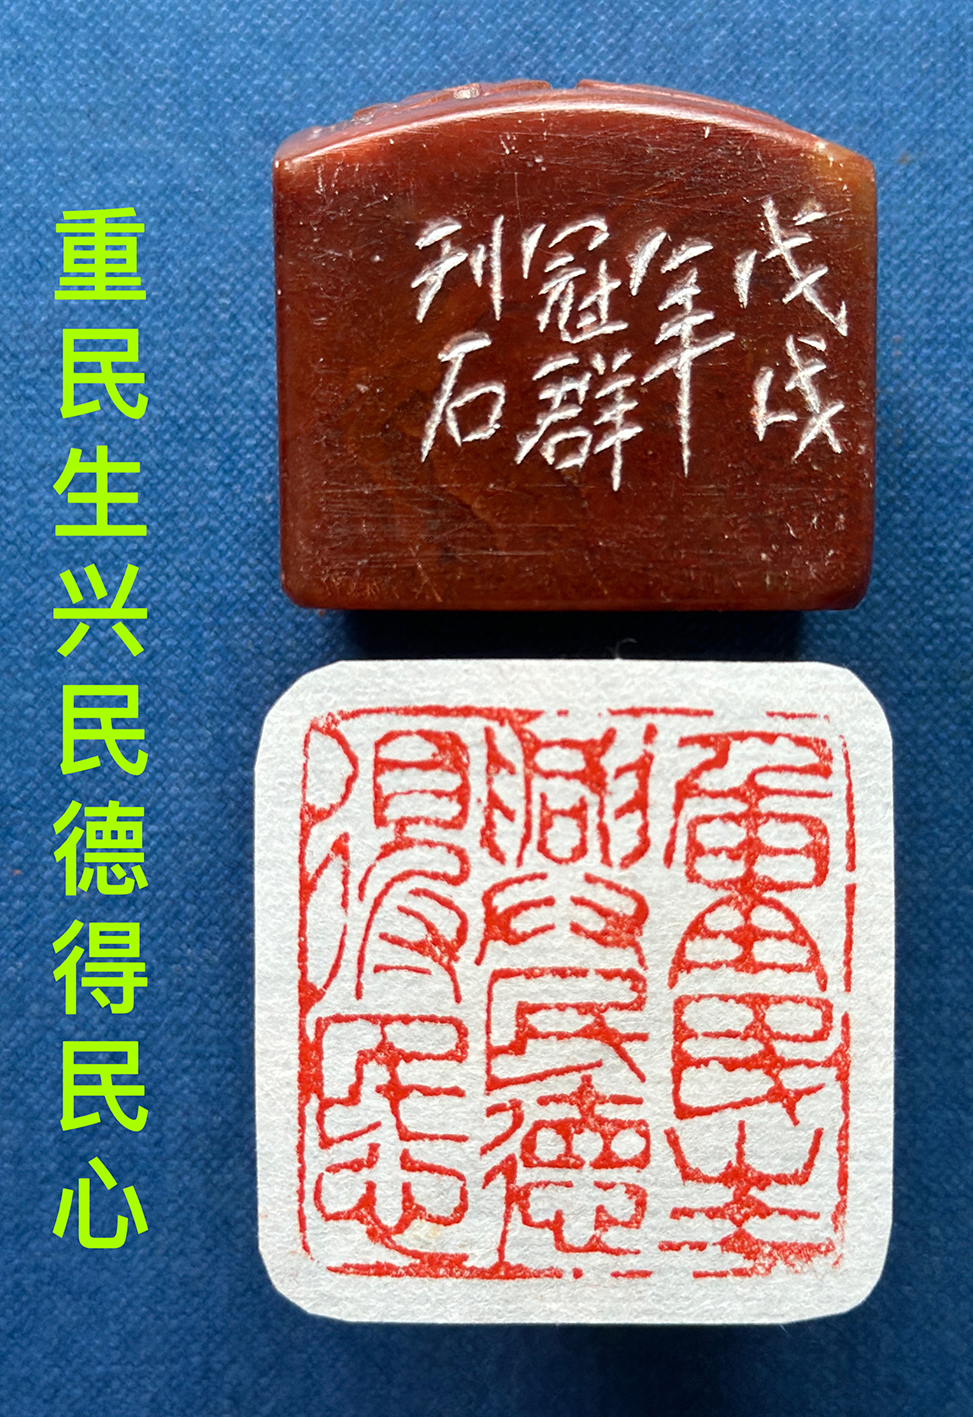 重民生兴民德得民心
戊戌
年
冠群
刊石
重民生
興民德
得民心